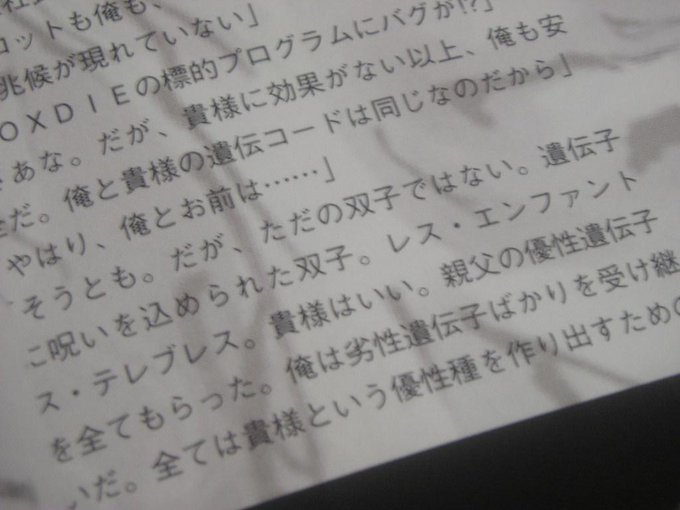 ロットも俺も、
兆候が現れていない」
ＯＸＤＩＥの標的プログラムにバグが!?」
あな。だが、貴様に効果がない以上、俺も安
だ。俺と貴様の遺伝コードは同じなのだから」
やはり、俺とお前は……」
そうとも。だが、ただの双子ではない。遺伝子
呪いを込められた双子。レス・エンファント
ス・テレブレス。貴様はいい。親父の優性遺伝子
を全てもらった。俺は劣性遺伝子ばかりを受け継
いだ。全ては貴様という優性種を作り出すための